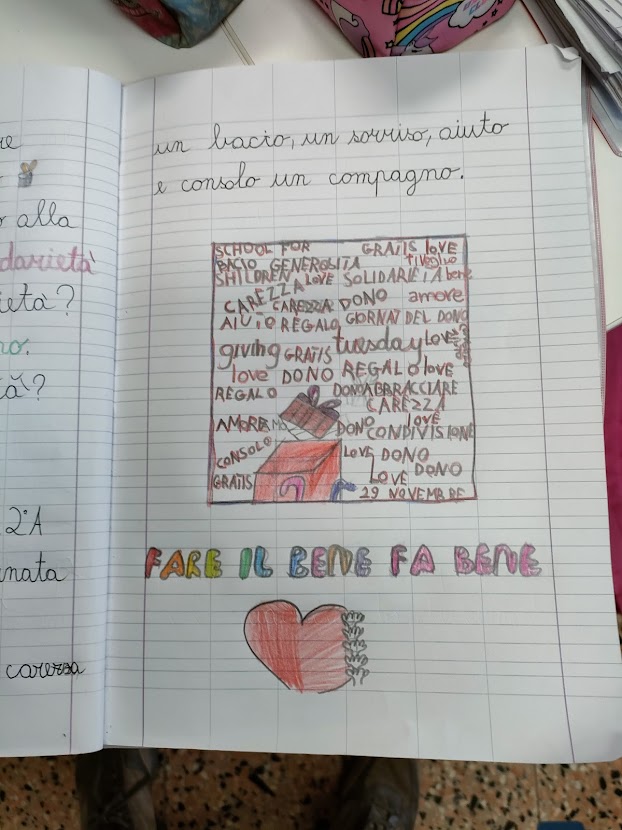 re
un bacio, un sorriso, aiuto
e consolo un compagno.
o alla
darietà
ietà?
no.
a?
2°A
nata
carezza
SCHOOL FOR GRATIS LOVE
BACIO GENEROLITA TI VOGLIO
SHILDREN LOVE SOLIDARIETA bene
CAREZZA CAREZZA DONO amore
AIUTO REGALO GIORNAT DEL DONO
giving GRATIS tuesday LOVE
love DONO REGALO love
REGALO DONO ABBRACCIARE
CAREZZA
AMORE DONO LOVE
CONDIVISIONE
CONSOLO LOVE DONO
GRATIS LOVE DONO
29 NOVEMBRE
FARE IL BENE FA BENE